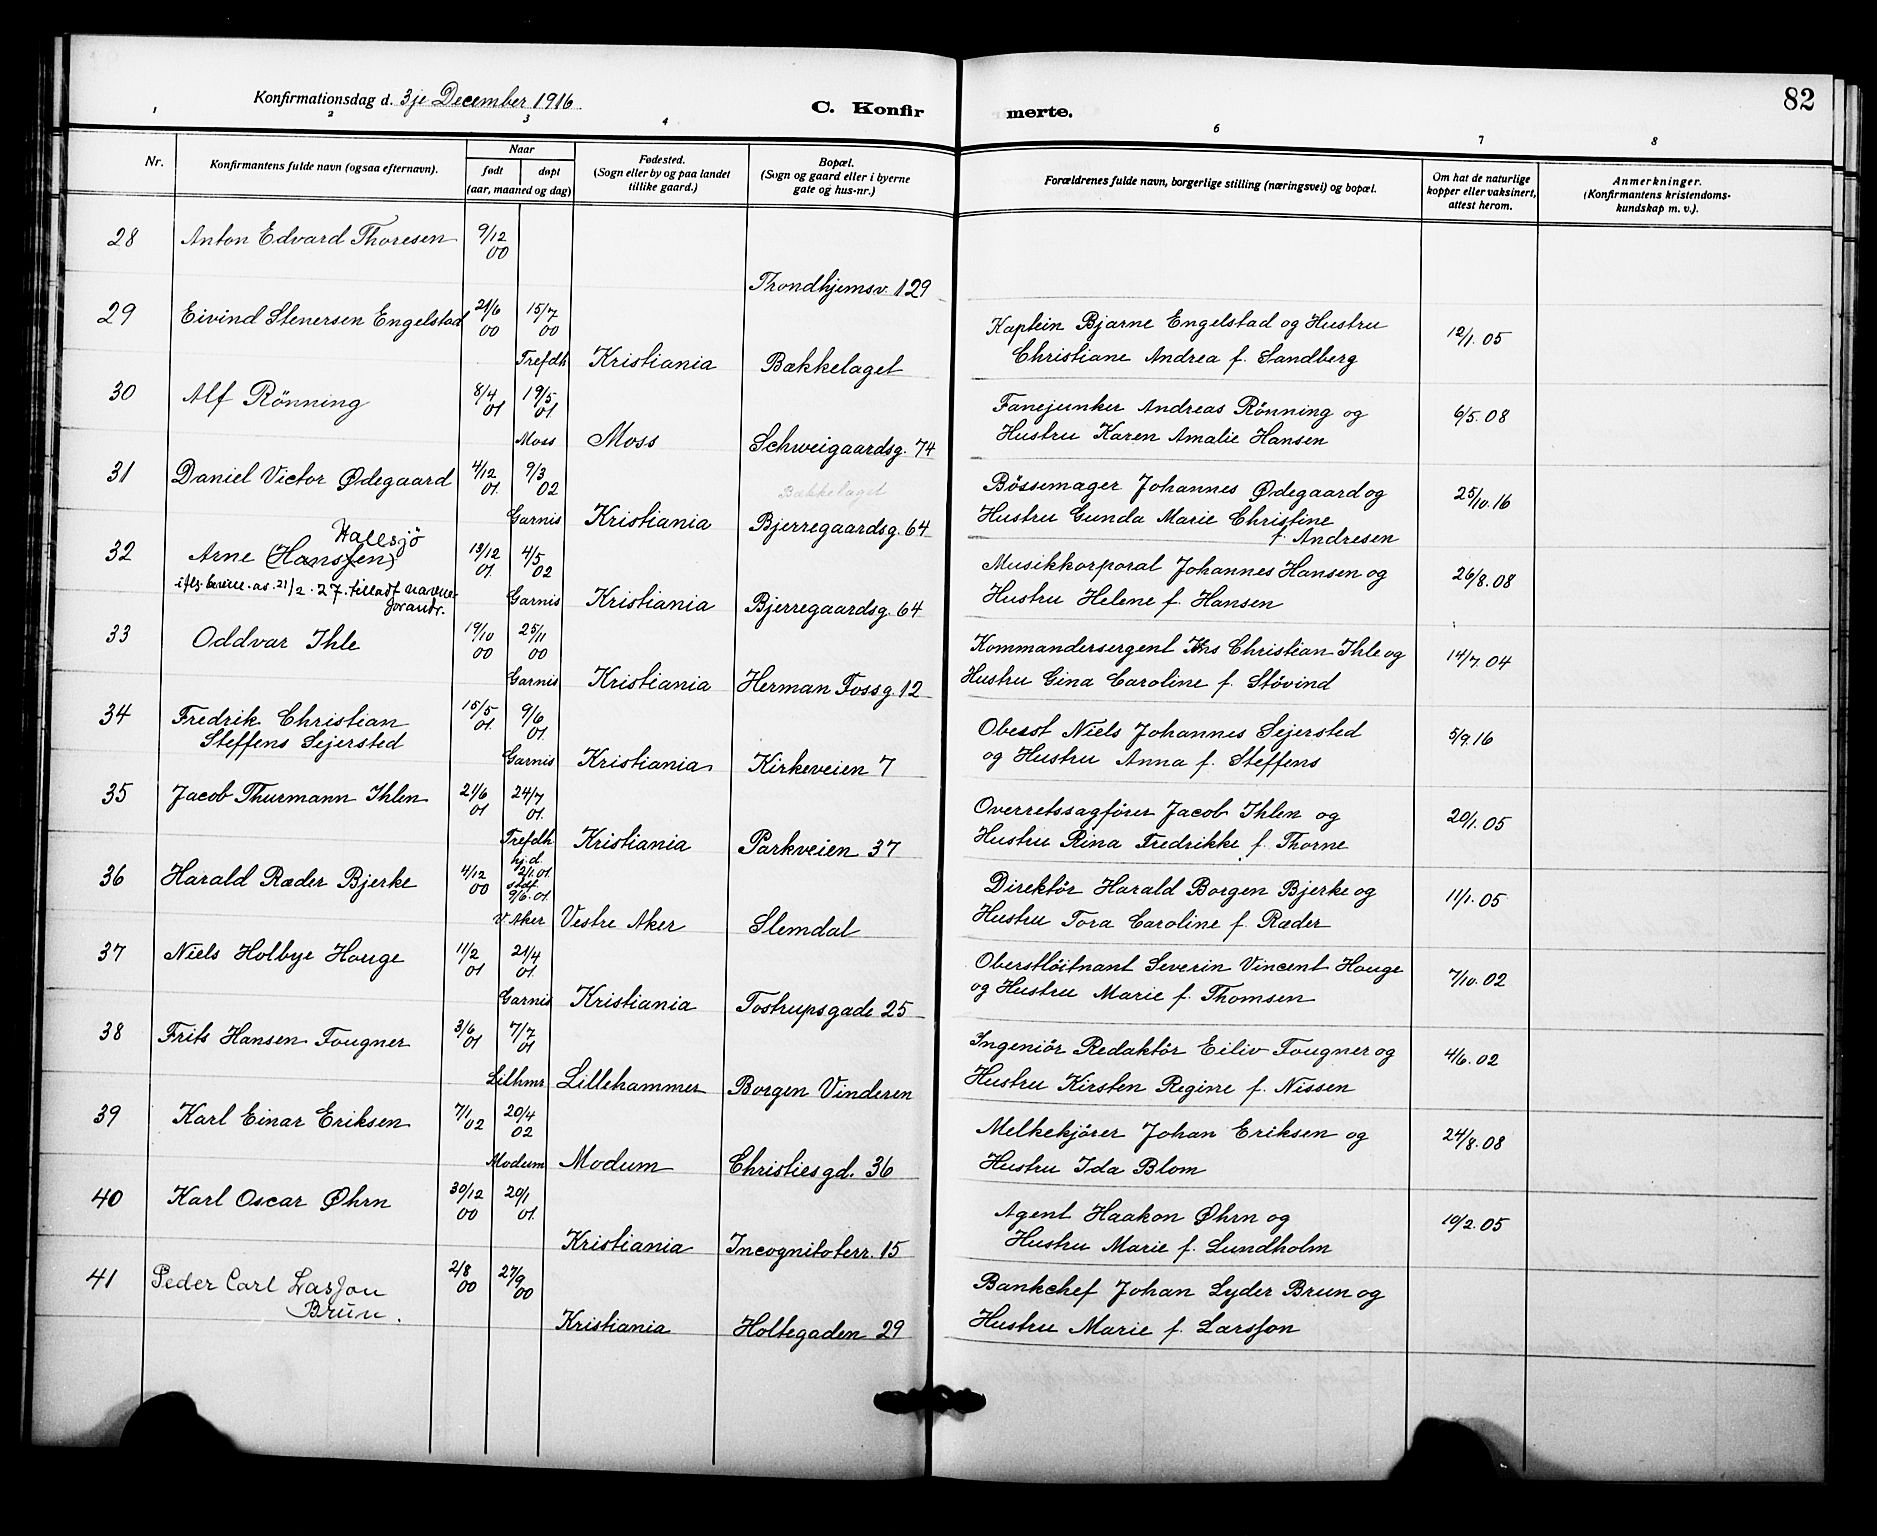 82
Konfirmationsdag d. 3je December 1916.
C. Konfir merte.
1 2 3 4 6 7 8
Nr.
Konfirmantens fulde navn (ogsaa efternavn).
Naar
født døpt
(aar, maaned og dag)
Fødested.
(Sogn eller by og paa landet
tillike gaard.)
Bopæl.
(Sogn og gaard eller i byerne
gate og hus-nr.)
Forældrenes fulde navn, borgerlige stilling (næringsvei) og bopæl.
Om hat de naturlige
kopper eller vaksinert,
attest herom.
Anmerkninger.
(Konfirmantens kristendoms-
kundskap m. v.).
28 Anton Edvard Thoresen 9/12 00
Trondhjemsv. 129
29 Eivind Stenersen Engelstad 21/6 00 15/7 00
Trefdh Kristiania Bækkelaget
Kaptein Bjarne Engelstad og Hustru
Christiane Andrea f. Sandberg
12/1. 05
30 Alf Rönning 8/4 01 19/5 01
Moss Moss Schweigaardsg. 74
Fanejunker Andreas Rönning og
Hustru Karen Amalie Hansen
6/5. 08
31 Daniel Victor Ødegaard 4/12 01. 9/3 02
Bækkelaget
Garnis Kristiania Bjerregaardsg. 64
Bössemager Johannes Ødegaard og
Hustru Gunda Marie Christine
f. Andresen
25/10. 16
Hallsjö
32 Arne (Hansen) 13/12 01. 4/5 02
iflg. bevill. as. 21/2. 27. tilladt navne-
forandr.
Garnis Kristiania Bjerregaardsg. 64
Musikkorporal Johannes Hansen og
Hustru Helene f. Hansen
26/8. 08
33 Oddvar Ihle 19/10 00 25/11 00
Garnis Kristiania Herman Fossg. 12
Kommandersergent Chr Christian Ihle og
Hustru Gina Caroline f. Stövind
14/7. 04
34 Fredrik Christian
Steffens Sejersted
15/5 01. 9/6 01.
Garnis Kristiania Kirkeveien 7
Oberst Niels Johannes Sejersted
og Hustru Anna f. Steffens
5/9. 16
35 Jacob Thurmann Ihlen 21/6 01 24/7 01.
Trefdh Kristiania Parkveien 37
Overretssagförer Jacob Ihlen og
Hustru Rina Fredrikke f. Thorne
20/1. 05
36 Harald Ræder Bjerke 4/12 00
hj.d. 2/1. 01. stdf. 9/6. 01.
V. Aker Vestre Aker Slemdal
Direktör Harald Borgen Bjerke og
Hustru Tora Caroline f. Ræder
11/1. 05
37 Niels Holbye Houge 11/2 01 21/4 01.
Garnis Kristiania Tostrupsgade 25
Oberstlöitnant Severin Vincent Houge
og Hustru Marie f. Thomsen
7/10. 02
38 Frits Hansen Fougner 3/6 01 7/7 01
Lilhmr Lillehammer Borgen Vinderen
Ingeniör Redaktör Eiliv Fougner og
Hustru Kirsten Regine f. Nissen
4/6. 02
39 Karl Einar Eriksen 7/1 02 20/4 02
Modum Modum Christiesgd. 36
Melkekjörer Johan Eriksen og
Hustru Ida Blom
24/8. 08
40 Karl Oscar Øhrn 30/12 00 20/1 01.
Kristiania Incognitoterr. 15
Agent Haakon Øhrn og
Hustru Marie f. Lundholm
10/2. 05
41 Peder Carl Lasson
Brun.
2/8 00 27/9 00
Kristiania Holtegaden 29
Bankchef Johan Lyder Brun og
Hustru Marie f. Larsson